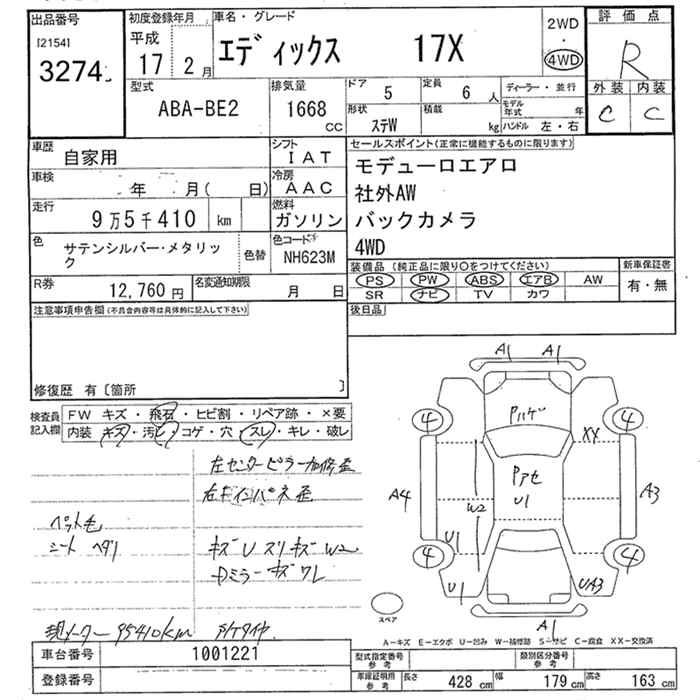 出品番号
[2154]
3274
初度登録年月
平成
17 2 月
車名・グレード
エディックス 17X
2WD
・
4WD
評価点
R
外装 内装
C C
型式
ABA-BE2
排気量
1668
CC
ドア
5
定員
6 人
形状
ステW
積載
kg
ディーラー・並行
モデル年式 年
ハンドル 左・右
車歴
自家用
シフト
IAT
車検
年 月( 日)
冷房
AAC
走行
9万5千410 km
燃料
ガソリン
色
サテンシルバー・メタリック
色替
色コード
NH623M
R券
12,760 円
名変通知期限
月 日
セールスポイント(正常に機能するものに限ります)
モデューロエアロ
社外AW
バックカメラ
4WD
装備品(純正品に限り○をつけてください)
PS PW ABS エアB AW
SR ナビ TV カワ
新車保証書
有・無
後日品
注意事項申告欄(不具合内容等は具体的に記入して下さい)
修復歴 有[箇所 ]
検査員
記入欄
FW キズ・飛石・ヒビ割・リペア跡・×要
内装 キズ・汚レ・コゲ・穴・スレ・キレ・破レ
左センターピラー
右
インパネ
ペット毛
シート
キズU スリキズ W2
ミラーキズワレ
現メーター 95410km
A1 A1
4 4
XX
A4
W2
U1
A3
U1
4 4
U1
UA3
A1
スペア
A-キズ E-エクボ U-凹み W-補修跡 S-サビ C-腐食 XX-交換済
車台番号
1001221
登録番号
型式指定番号
参考
類別区分番号
参考
車庫証明用
参考
長さ 428 cm 幅 179 cm 高さ 163 cm